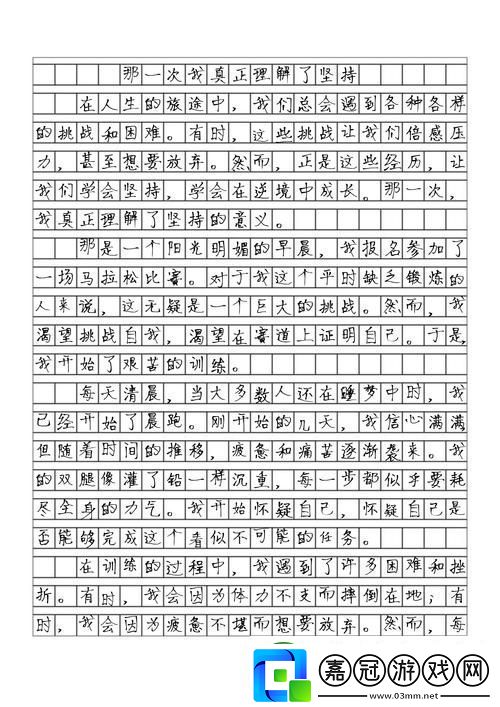 那一次我真正理解了坚持
在人生的旅途中，我们总会遇到各种各样
的挑战和困难。有时，这些挑战让我们倍感压
力，甚至想要放弃。然而，正是这些经历，让
我们学会坚持，学会在逆境中成长。那一次，
我真正理解了坚持的意义。
那是一个阳光明媚的早晨，我报名参加了
一场马拉松比赛。对于我这个平时缺乏锻炼的
人来说，这无疑是一个巨大的挑战。然而，我
渴望挑战自我，渴望在赛道上证明自己。于是，
我开始了艰苦的训练。
每天清晨，当大多数人还在睡梦中时，我
已经开始了晨跑。刚开始的几天，我信心满满，
但随着时间的推移，疲惫和痛苦逐渐袭来。我
的双腿像灌了铅一样沉重，每一步都似乎要耗
尽全身的力气。我开始怀疑自己，怀疑自己是
否能够完成这个看似不可能的任务。
在训练的过程中，我遇到了许多困难和挫
折。有时，我会因为体力不支而摔倒在地；有
时，我会因为疲惫不堪而想要放弃。然而，每
嘉冠游戏网
www.03mm.net